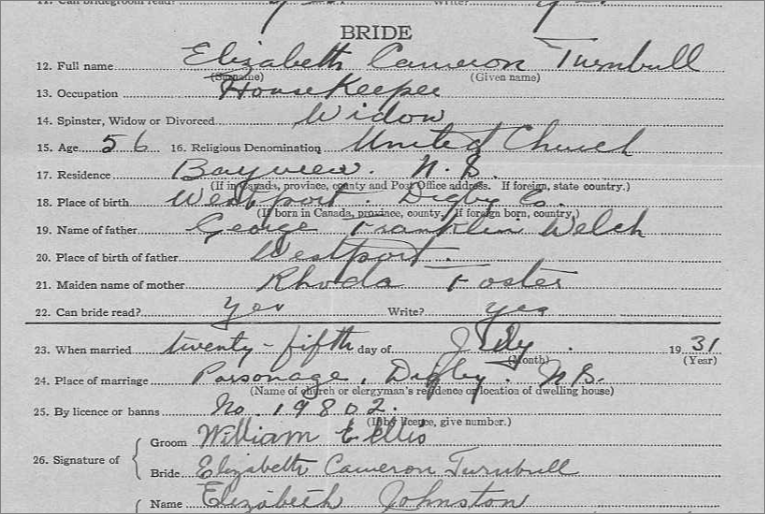 11. Can bridegroom read? Write?
BRIDE
12. Full name Elizabeth Cameron Turnbull
(Surname) (Given name)
13. Occupation HouseKeeper
14. Spinster, Widow or Divorced Widow
15. Age 56 16. Religious Denomination United Church
17. Residence Bayview. N.S.
(If in Canada, province, county and Post Office address. If foreign, state country.)
18. Place of birth Westport. Digby Co.
(If born in Canada, province, county, If foreign born, country.)
19. Name of father George Franklin Welch
20. Place of birth of father Westport.
21. Maiden name of mother Rhoda Foster
22. Can bride read? Yes Write? yes
23. When married twenty-fifth day of July 1931
(Month) (Year)
24. Place of marriage Parsonage, Digby. N.S.
(Name of church or clergyman's residence or location of dwelling house)
25. By licence or banns No. 19802.
(If by licence, give number.)
26. Signature of
Groom William E Ellis
Bride Elizabeth Cameron Turnbull
Name Elizabeth Johnston